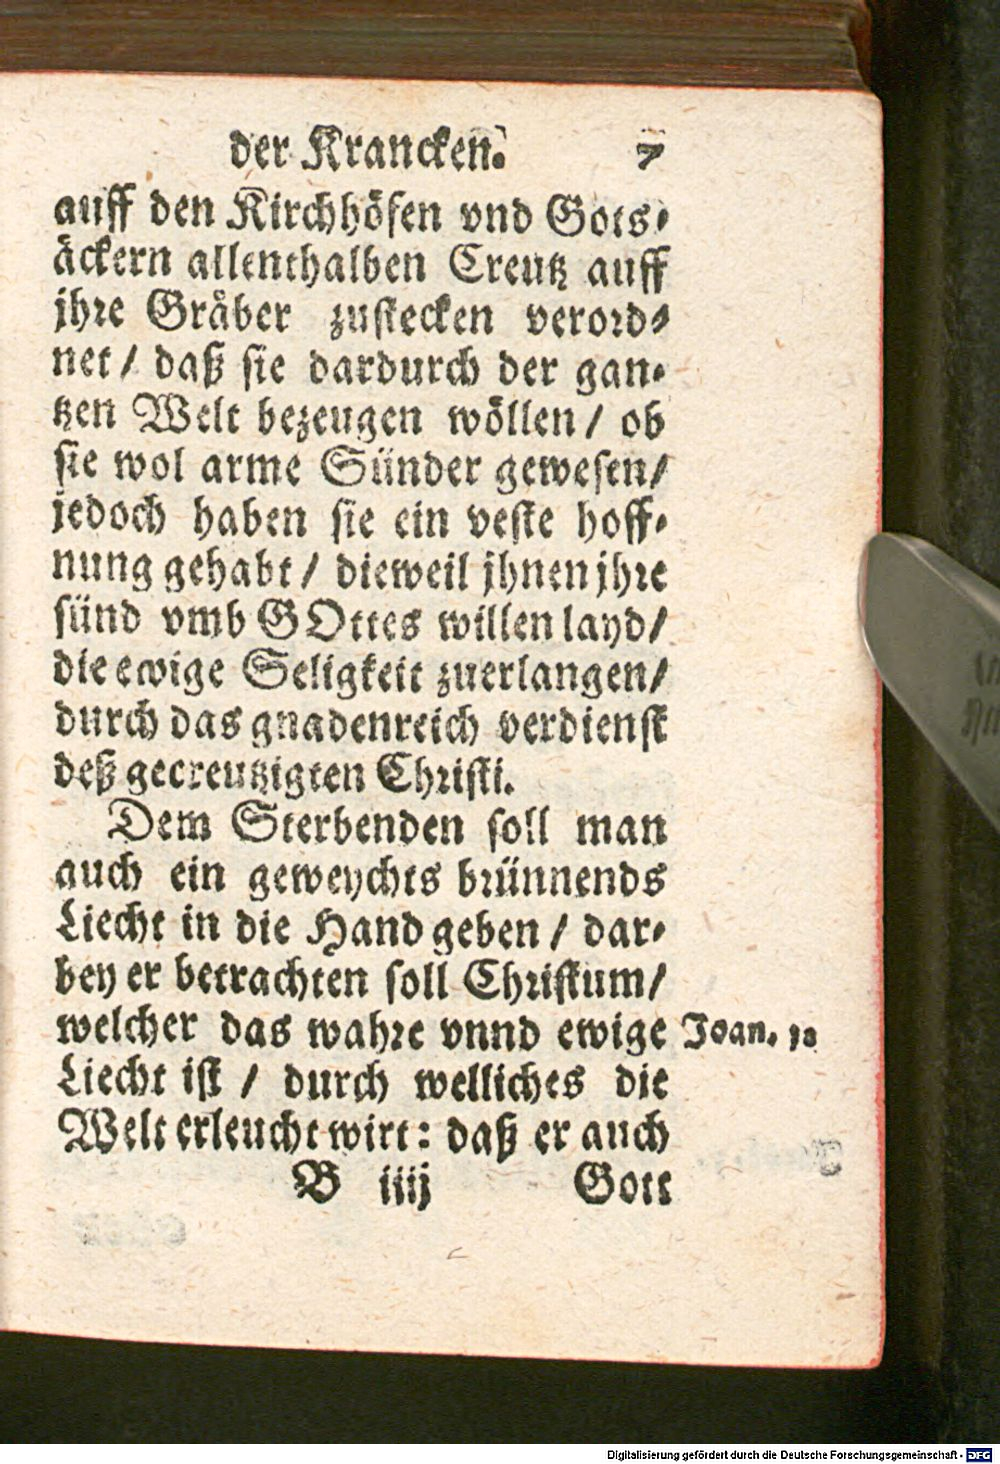 der Krancken. 7
auff den Kirchhöfen vnd Gots-
äckern allenthalben Creutz auff
jhre Gräber zustecken verord-
net / daß sie dardurch der gan-
tzen Welt bezeugen wöllen / ob
sie wol arme Sünder gewesen /
jedoch haben sie ein veste hoff-
nung gehabt / dieweil jhnen jhre
sünd vmb GOttes willen layd /
die ewige Seligkeit zuerlangen /
durch das gnadenreich verdienst
deß gecreutzigten Christi.
Dem Sterbenden soll man
auch ein geweychts brünnends
Liecht in die Hand geben / dar-
bey er betrachten soll Christum /
welcher das wahre vnnd ewige Joan.
Liecht ist / durch welliches die
Welt erleucht wirt: daß er auch
B iiij Gott
Digitalisierung gefördert durch die Deutsche Forschungsgemeinschaft - DFG